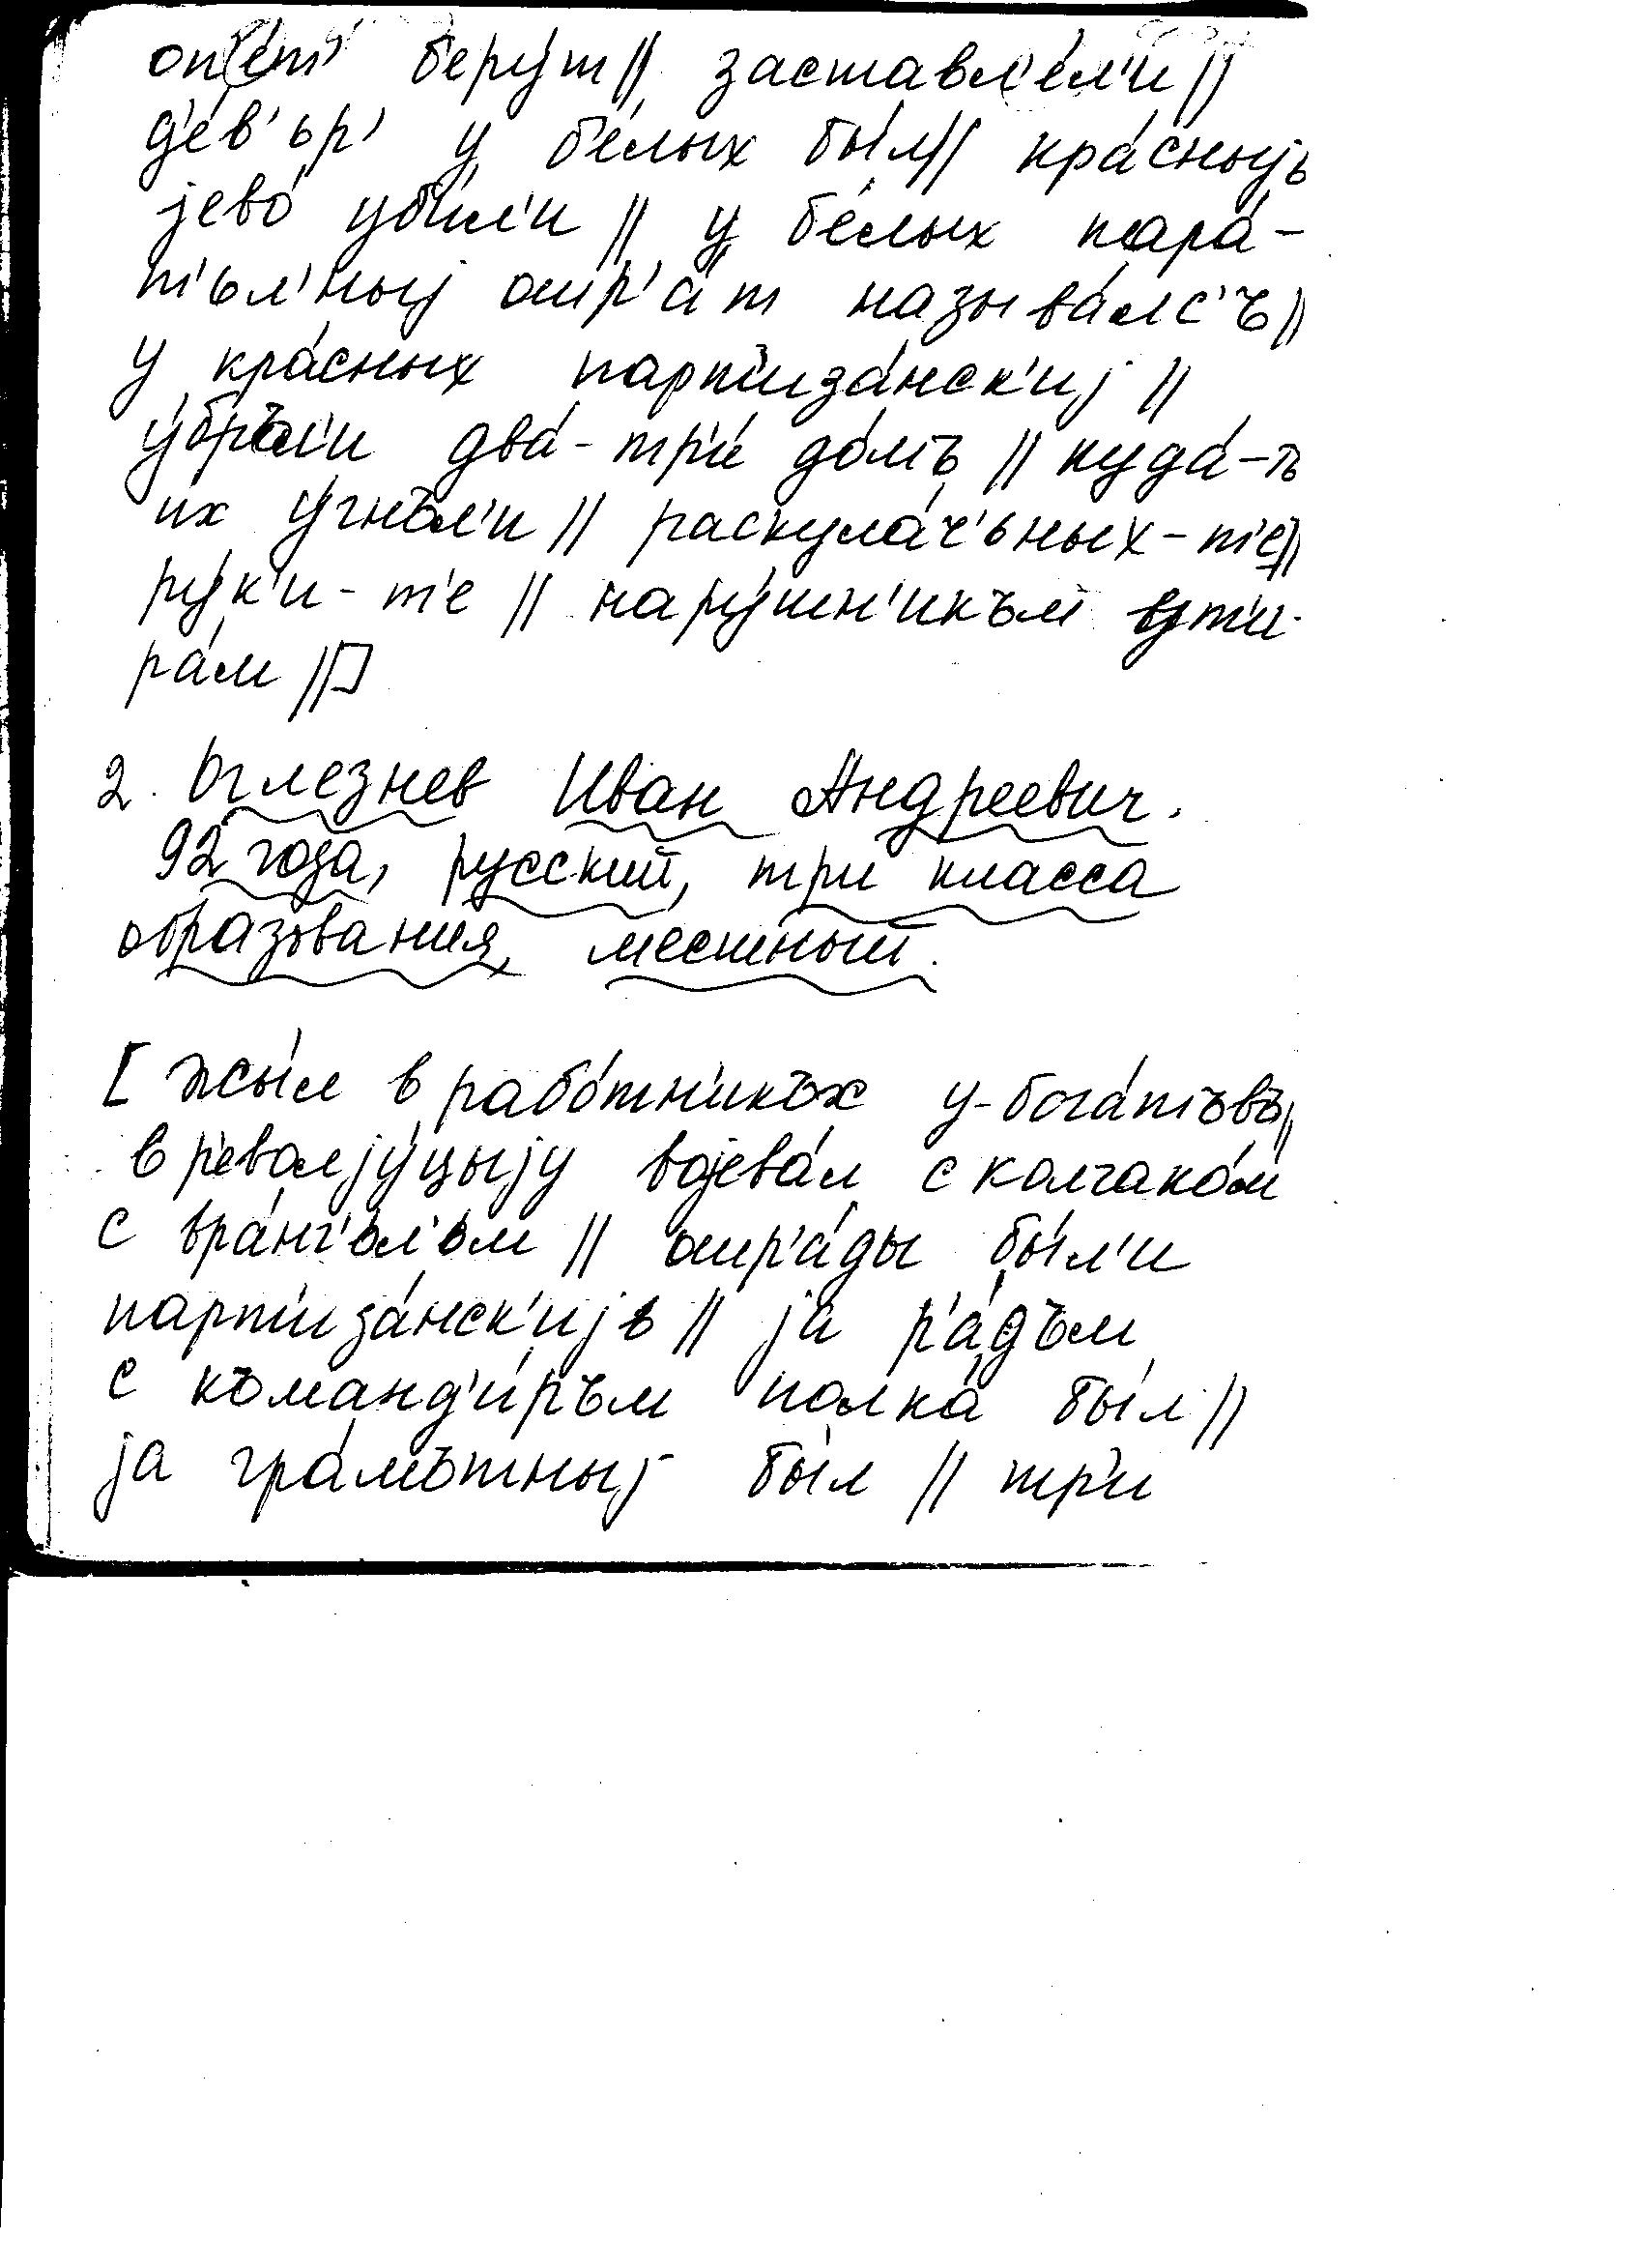 оп'е́т' б'еру́т || заставл'е́л'и ||
д'е́в'ьр' у б'е́лых бы́л || кра́сныjь
jево́ уби́л'и || у б'е́лых кара́-
т'ьл'ныj отр'а́т называ́лс'ъ ||
у кра́сных парт'иза́нск'иj ||
у́бръл'и два́-тр'и́ до́мъ || куда́-тъ
их у́гнъл'и || раскула́ч'ьных-т'е ||
ру́к'и-т'е || нару́шн'икъм ут'и-
ра́м ||]
2. Оглезнев Иван Андреевич.
92 года, русский, три класса
образования, местный.
[ жы́л в рабо́тн'икъх у-бога́тъвъ ||
в р'евол'jу́цыjу војева́л с колчако́м
с вра́нг'ьл'ьм || отр'а́ды бы́л'и
парт'иза́нск'иjь || jа р'а́дъм
с къманд'и́ръм полка́ бы́л ||
jа гра́мътныj бы́л || тр'и